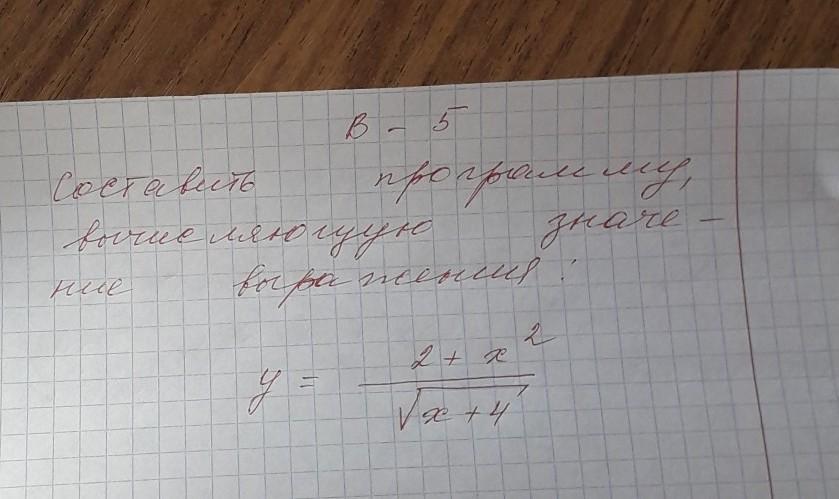 В - 5
Составить программу,
вычисляющую значе-
ние выражения:
y = \frac{2 + x^2}{\sqrt{x + 4}}